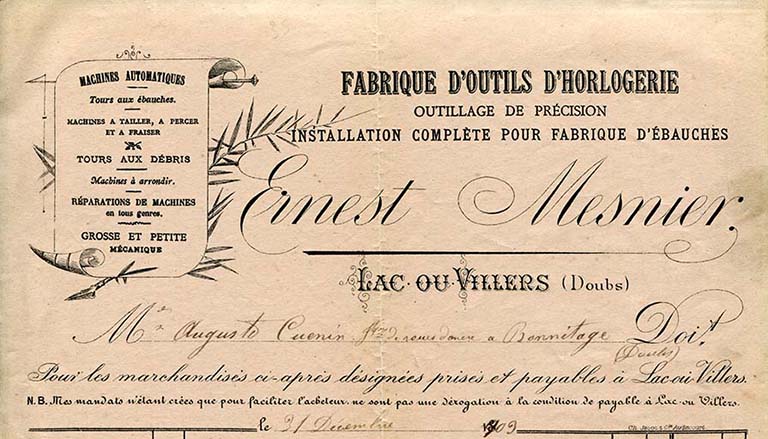 MACHINES AUTOMATIQUES
Tours aux ébauches.
MACHINES A TAILLER, A PERCER
ET A FRAISER
TOURS AUX DÉBRIS
Machines à arrondir.
RÉPARATIONS DE MACHINES
en tous genres.
GROSSE ET PETITE
MÉCANIQUE
FABRIQUE D'OUTILS D'HORLOGERIE
OUTILLAGE DE PRÉCISION
INSTALLATION COMPLÈTE POUR FABRIQUE D'ÉBAUCHES
Ernest Mesnier,
LAC-OU-VILLERS (Doubs)
Auguste Cuenin a Bonnétage Doit
(Doubs)
Pour les marchandises ci-après désignées prises et payables à Lac-ou-Villers.
N.B. Mes mandats n'étant créés que pour faciliter l'acheteur, ne sont pas une dérogation à la condition de payable à Lac-ou-Villers.
le 31 Décembre 1903